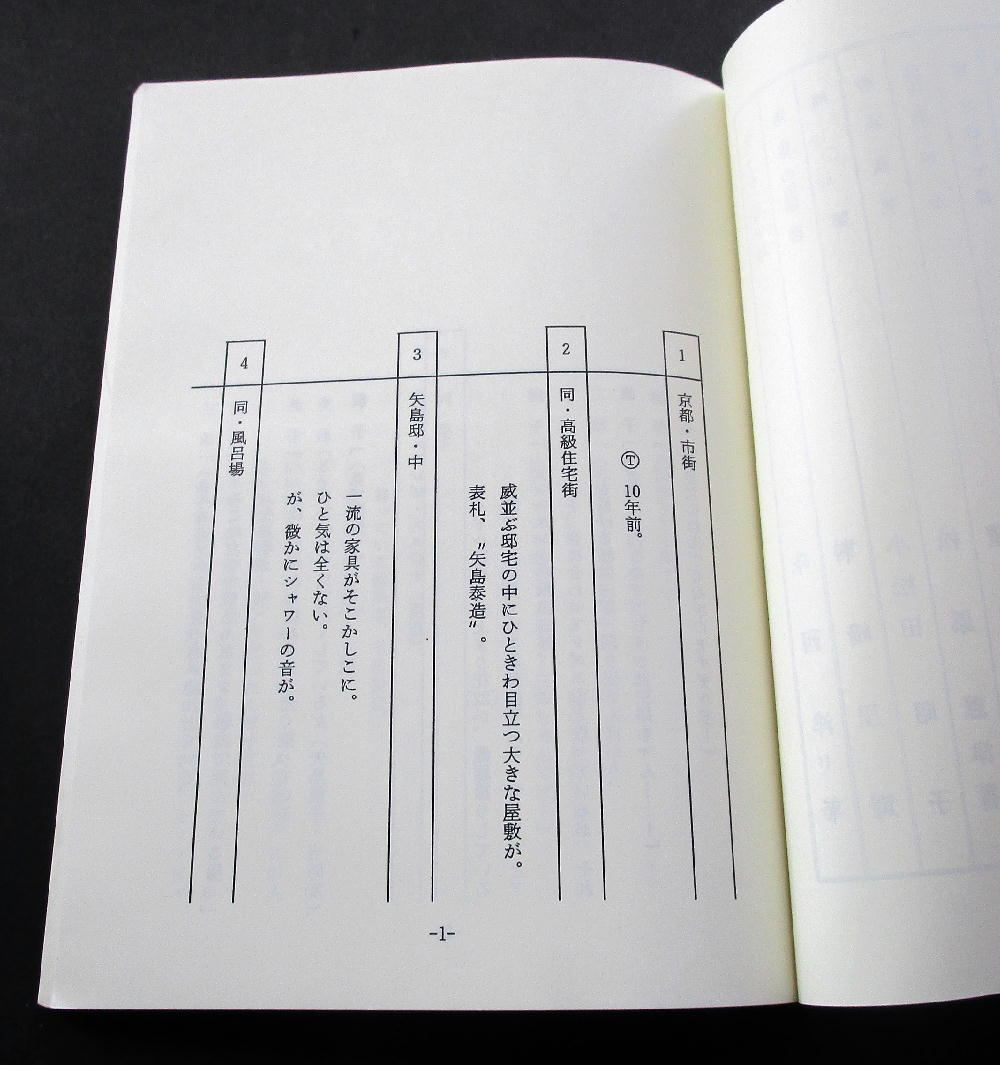 1 京都・市街
Ⓣ 10年前。
2 同・高級住宅街
威並ぶ邸宅の中にひときわ目立つ大きな屋敷が。
表札、〝矢島泰造〟。
3 矢島邸・中
一流の家具がそこかしこに。
ひと気は全くない。
が、微かにシャワーの音が。
4 同・風呂場
-1-